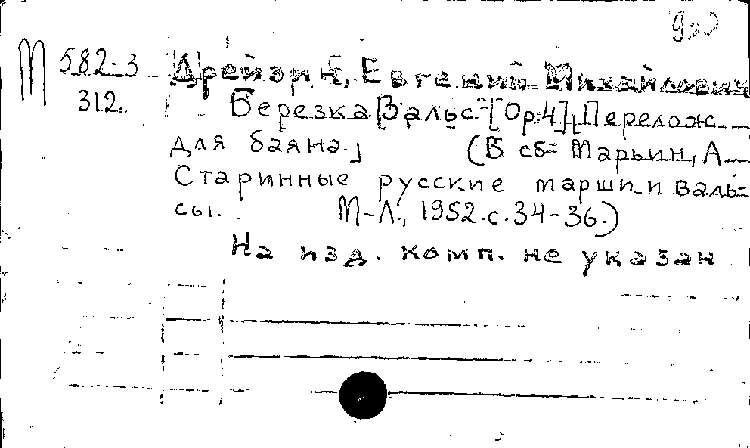 М 582-3
312.
Дрейзин, Евгений Михайлович
Березка [Вальс. [Ор.4], Перелож.
для баяна.] (В сб: Марьин, А.
Старинные русские марши и валь-
сы. М-Л., 1952. с. 34-36.)
На изд. комп. не указан